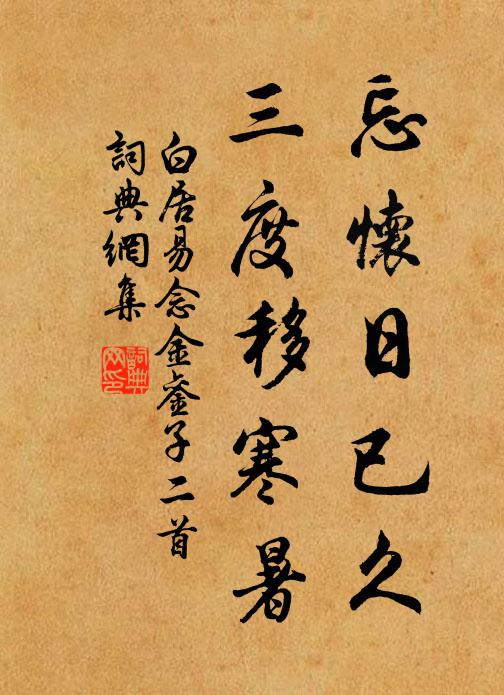 忘懷日已久
三度移寒暑
白居易念金鑾子二首
詞典網集
詞典網印